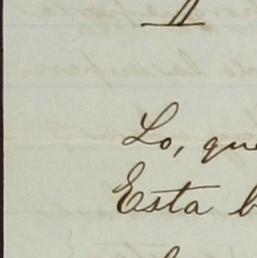 II
Lo, que
Esta b